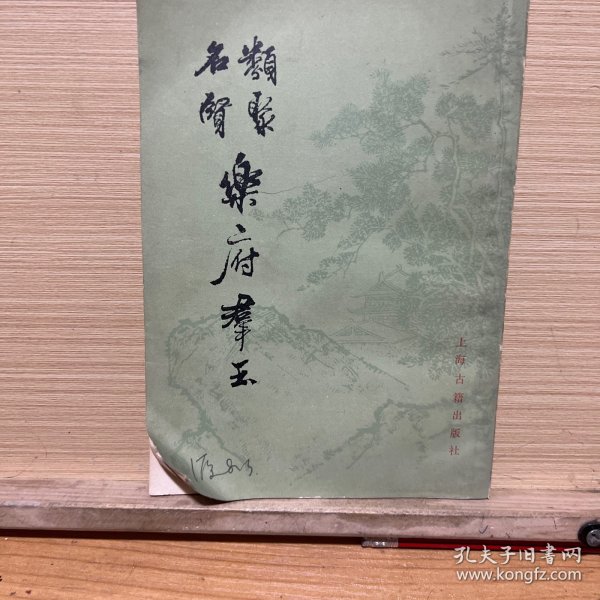 類聚
名賢
樂府羣玉
上海古籍出版社
孔夫子旧书网
www.kongfz.com